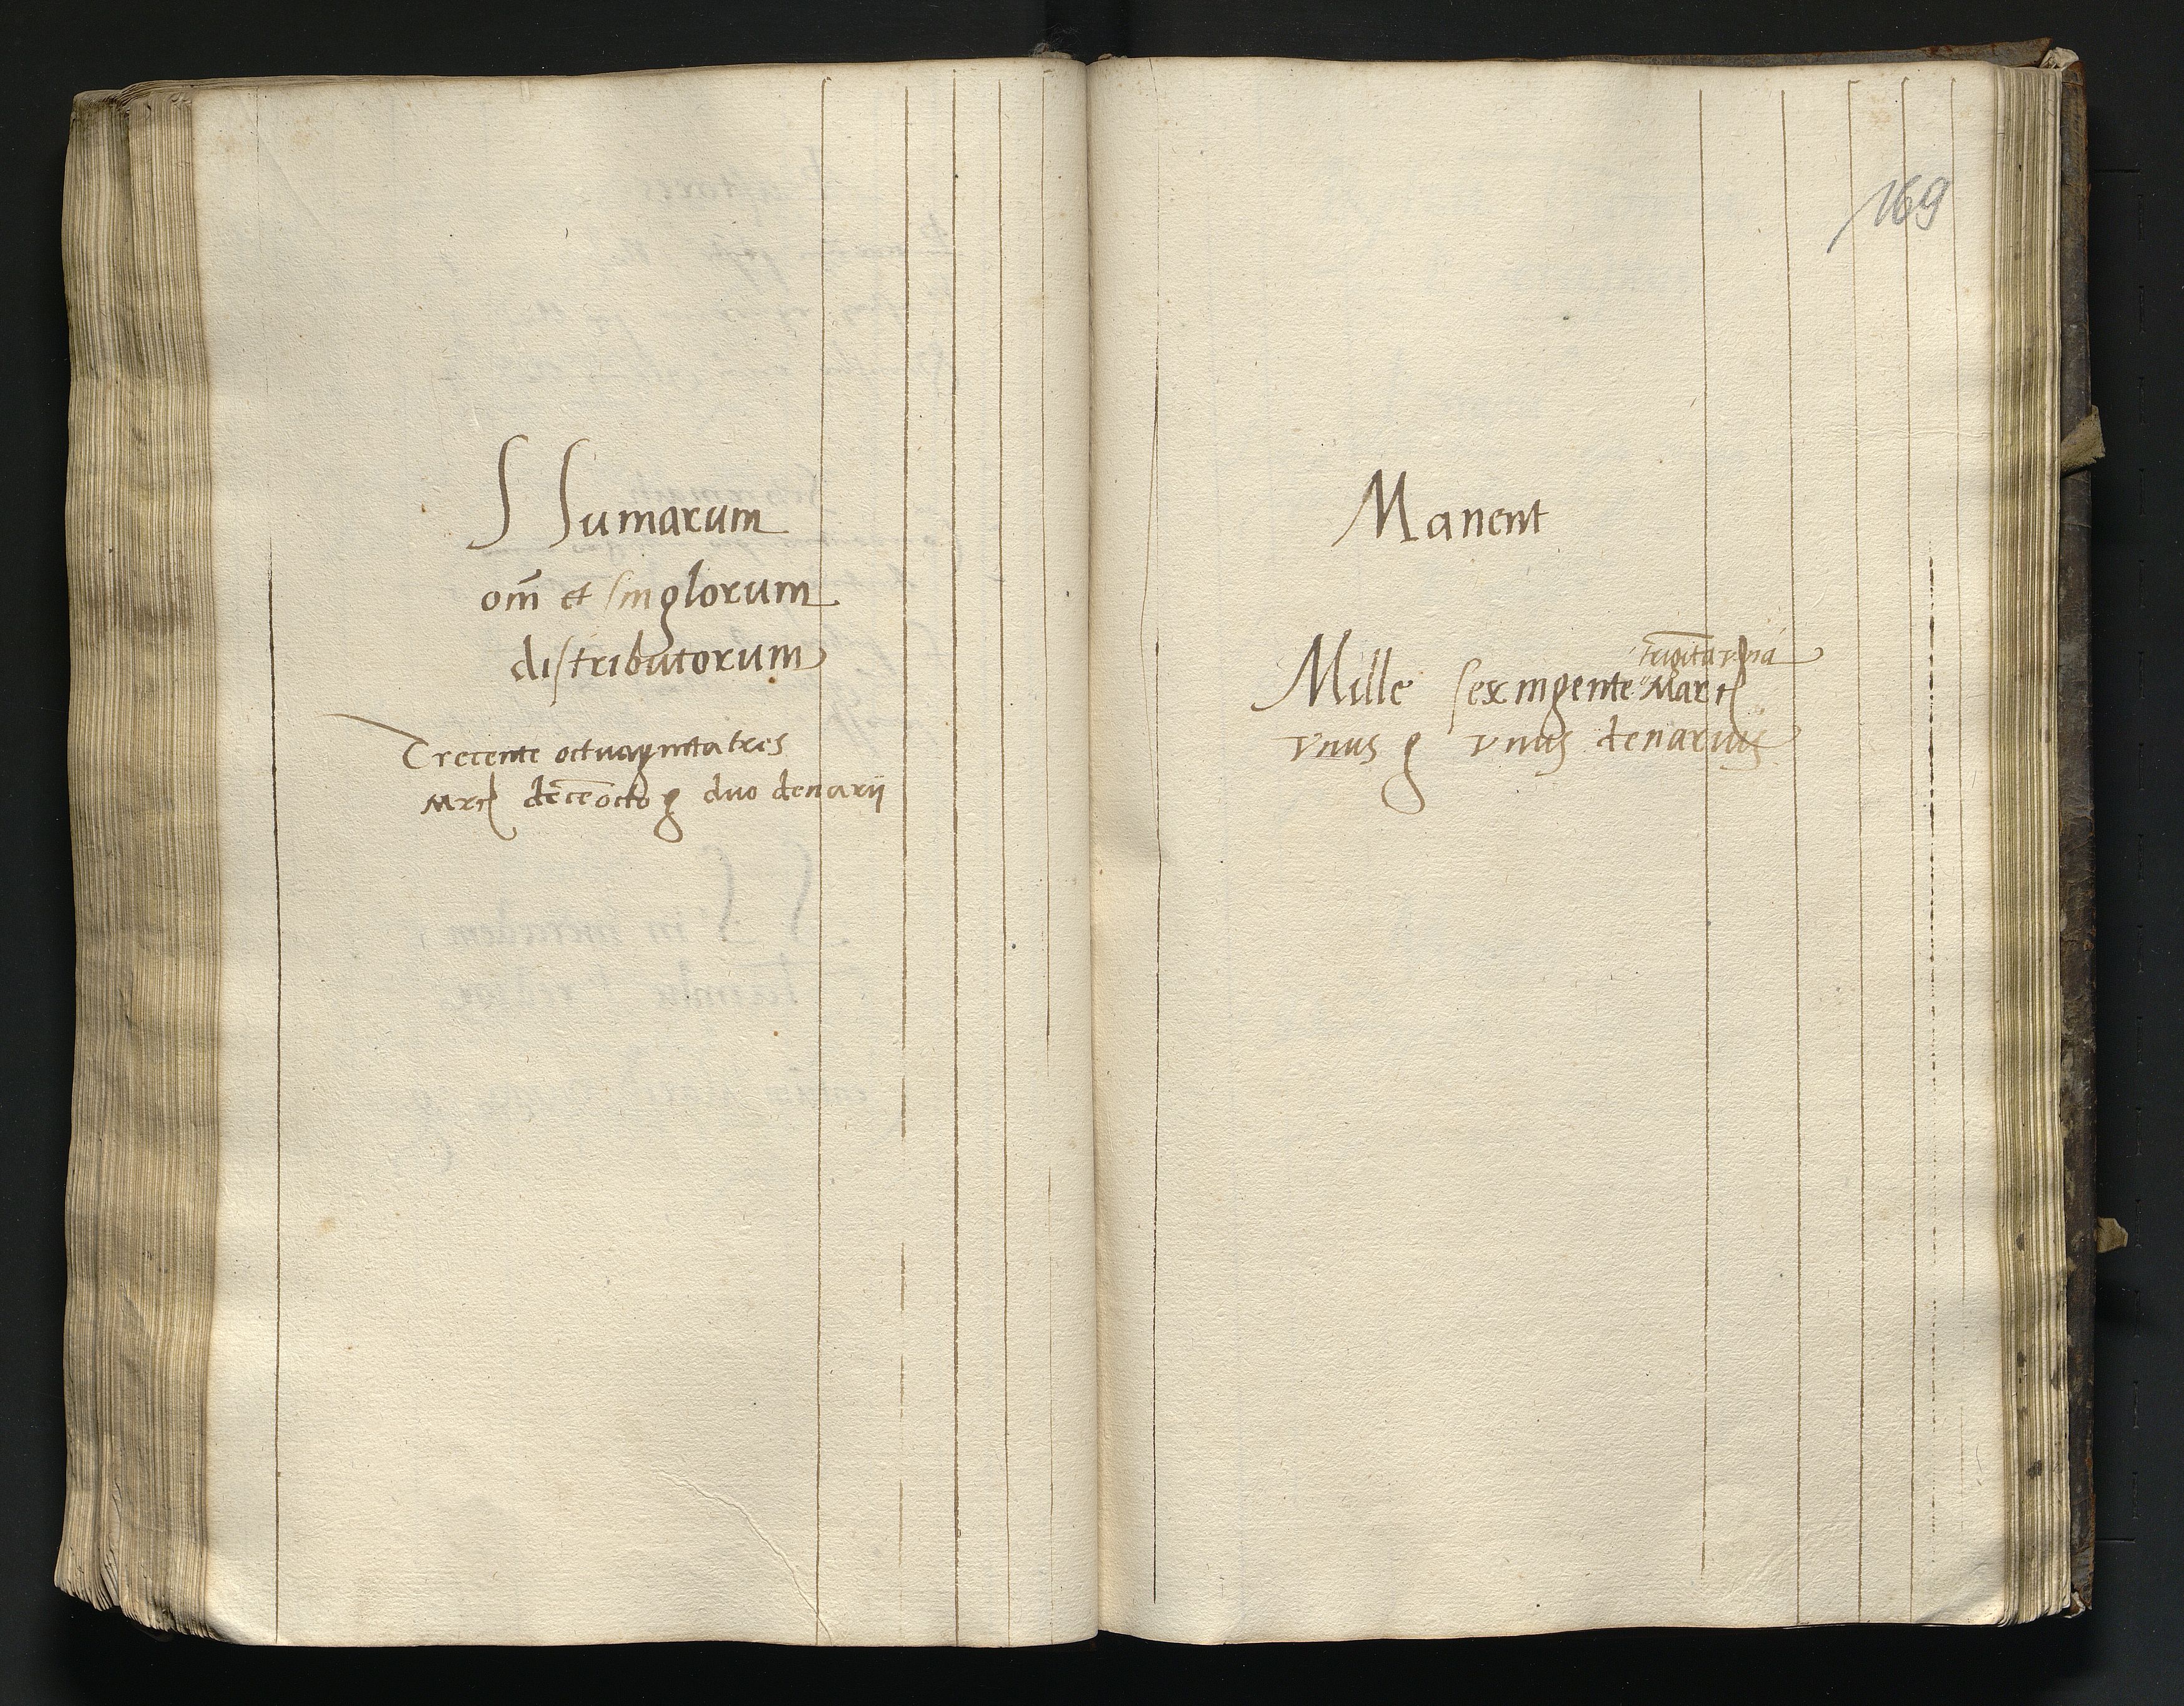 S Sumarum
om̄ et singlorum
distributorum
Trecente octuaginta tres
Mrc decē octo g duo denarii
169
Manent
trigīta una
Mille sexingente Marc
vnus g vnus denarius